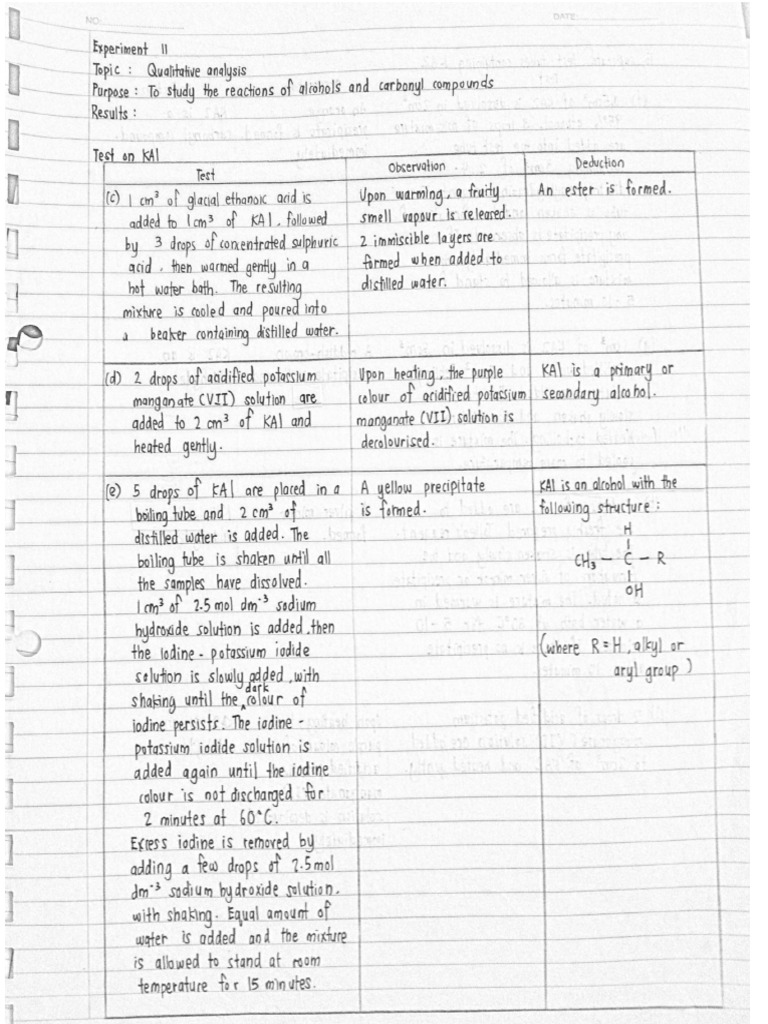 NO:
DATE:
Experiment 11
Topic : Qualitative analysis
Purpose : To study the reactions of alcohols and carbonyl compounds
Results :
Test on KA1
Test
Observation
Deduction
(c) 1 cm³ of glacial ethanoic acid is
added to 1 cm³ of KA1, followed
by 3 drops of concentrated sulphuric
acid, then warmed gently in a
hot water bath. The resulting
mixture is cooled and poured into
a beaker containing distilled water.
Upon warming, a fruity
smell vapour is released.
2 immiscible layers are
formed when added to
distilled water.
An ester is formed.
(d) 2 drops of acidified potassium
manganate (VII) solution are
added to 2 cm³ of KA1 and
heated gently.
Upon heating, the purple
colour of acidified potassium
manganate (VII) solution is
decolourised.
KA1 is a primary or
secondary alcohol.
(e) 5 drops of KA1 are placed in a
boiling tube and 2 cm³ of
distilled water is added. The
boiling tube is shaken until all
the samples have dissolved.
1 cm³ of 2.5 mol dm⁻³ sodium
hydroxide solution is added, then
the iodine - potassium iodide
solution is slowly added, with
shaking until the dark colour of
iodine persists. The iodine -
potassium iodide solution is
added again until the iodine
colour is not discharged for
2 minutes at 60°C.
Excess iodine is removed by
adding a few drops of 2.5 mol
dm⁻³ sodium hydroxide solution,
with shaking. Equal amount of
water is added and the mixture
is allowed to stand at room
temperature for 15 minutes.
A yellow precipitate
is formed.
KA1 is an alcohol with the
following structure :
H
CH₃ — C — R
OH
(where R = H, alkyl or
aryl group)